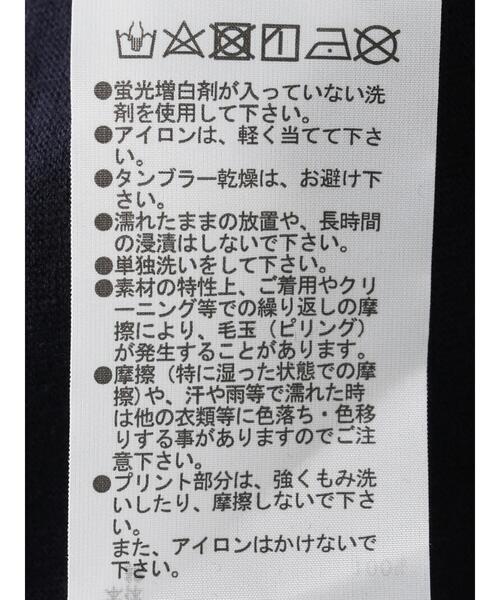 ●蛍光増白剤が入っていない洗
剤を使用して下さい。
●アイロンは、軽く当てて下さ
い。
●タンブラー乾燥は、お避け下
さい。
●濡れたままの放置や、長時間
の浸漬はしないで下さい。
●単独洗いをして下さい。
●素材の特性上、ご着用やクリ
ーニング等での繰り返しの摩
擦により、毛玉（ピリング）
が発生することがあります。
●摩擦（特に湿った状態での摩
擦）や、汗や雨等で濡れた時
は他の衣類等に色落ち・色移
りする事がありますのでご注
意下さい。
●プリント部分は、強くもみ洗
いしたり、摩擦しないで下さ
い。
また、アイロンはかけないで
下さい。